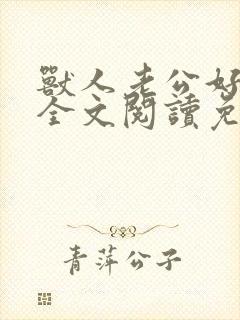 獸人老公好
全文閱讀免
青萍公子